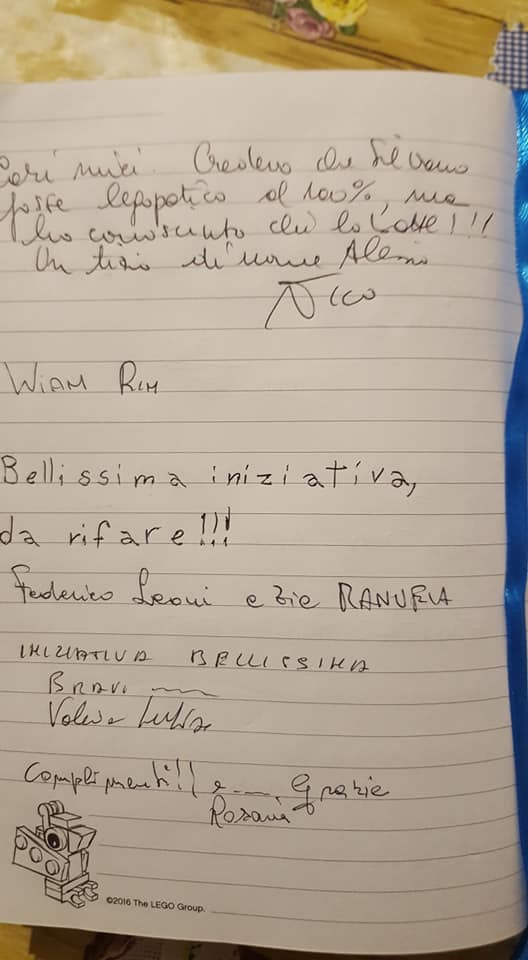 Cari amici. Credevo che Silvano
fosse legopatico al 100%, ma
ho conosciuto chi lo batte!!!
Un tizio di nome
Nico
WIAM RIM
Bellissima iniziativa,
da rifare!!!
Federico Leoni e zie
INIZIATIVA BELLISSIMA
BRAVI
Complimenti!! e .... Grazie
©2016 The LEGO Group.